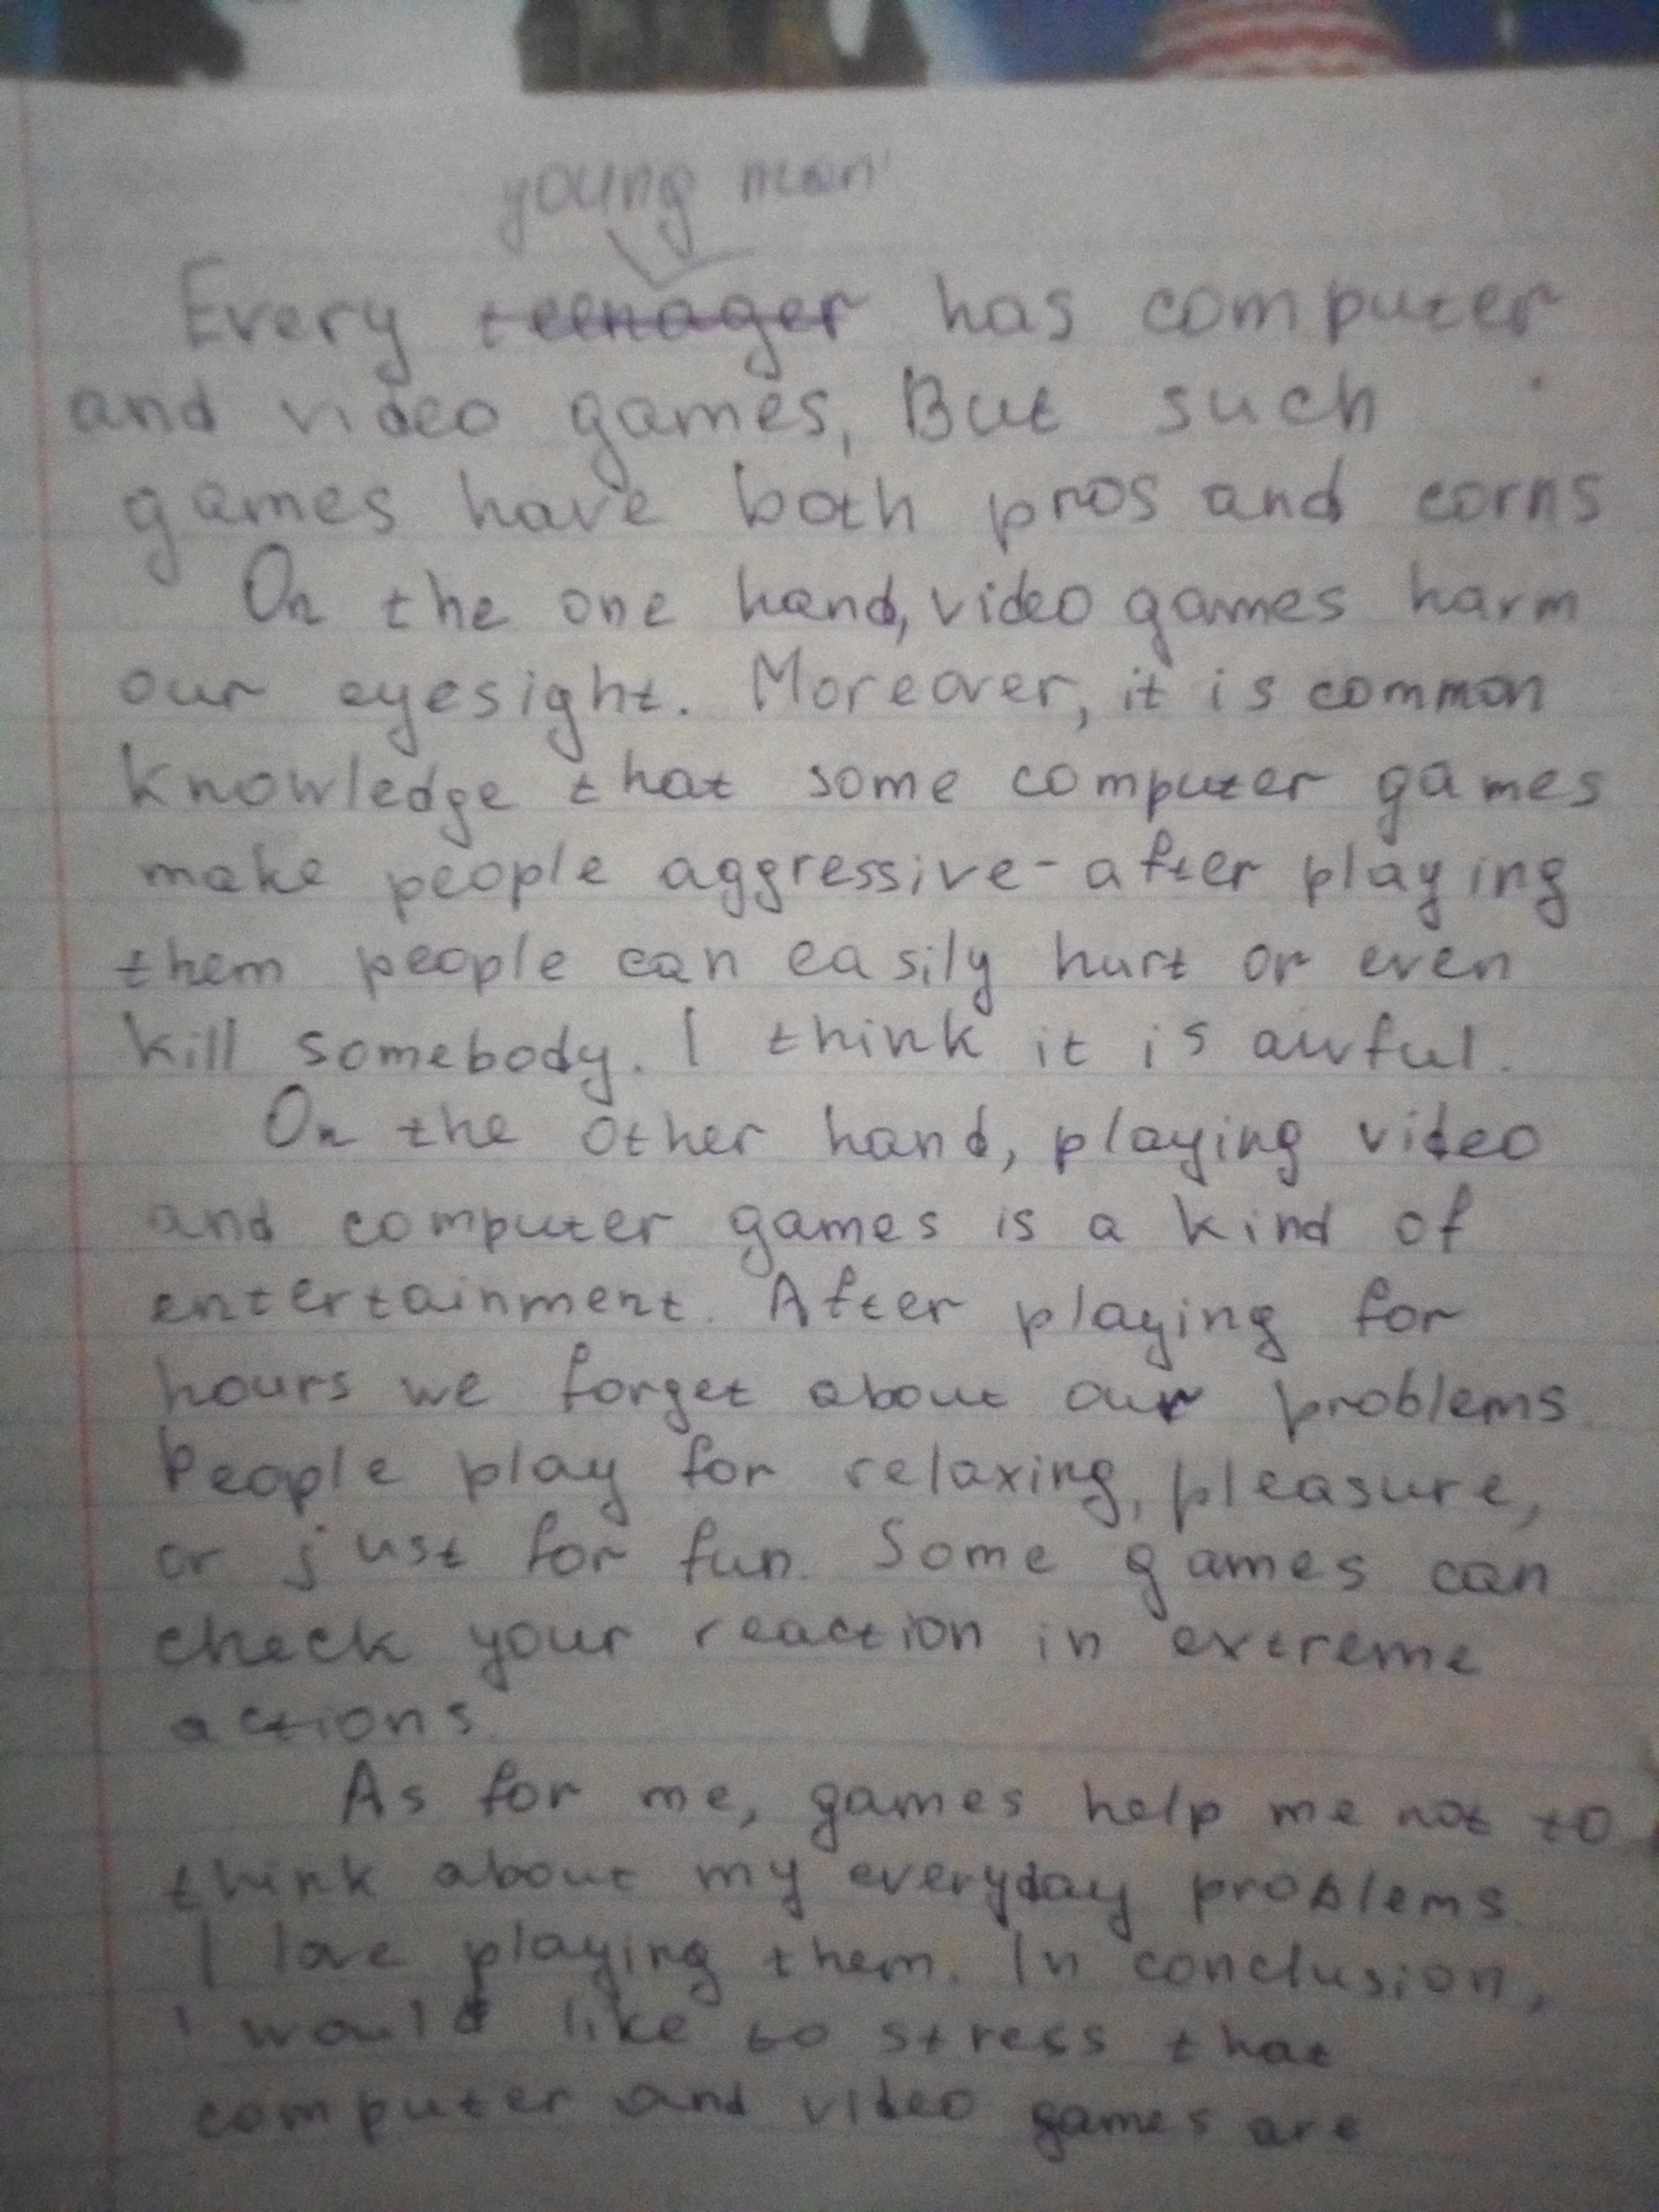 young man
Every teenager has computer
and video games, But such
games have both pros and corns
On the one hand, video games harm
our eyesight. Moreover, it is common
knowledge that some computer games
make people aggressive - after playing
them people can easily hurt or even
kill somebody. I think it is awful.
On the other hand, playing video
and computer games is a kind of
entertainment. After playing for
hours we forget about our problems.
People play for relaxing, pleasure,
or just for fun. Some games can
check your reaction in extreme
actions.
As for me, games help me not to
think about my everyday problems.
I love playing them. In conclusion,
I would like to stress that
computer and video games are